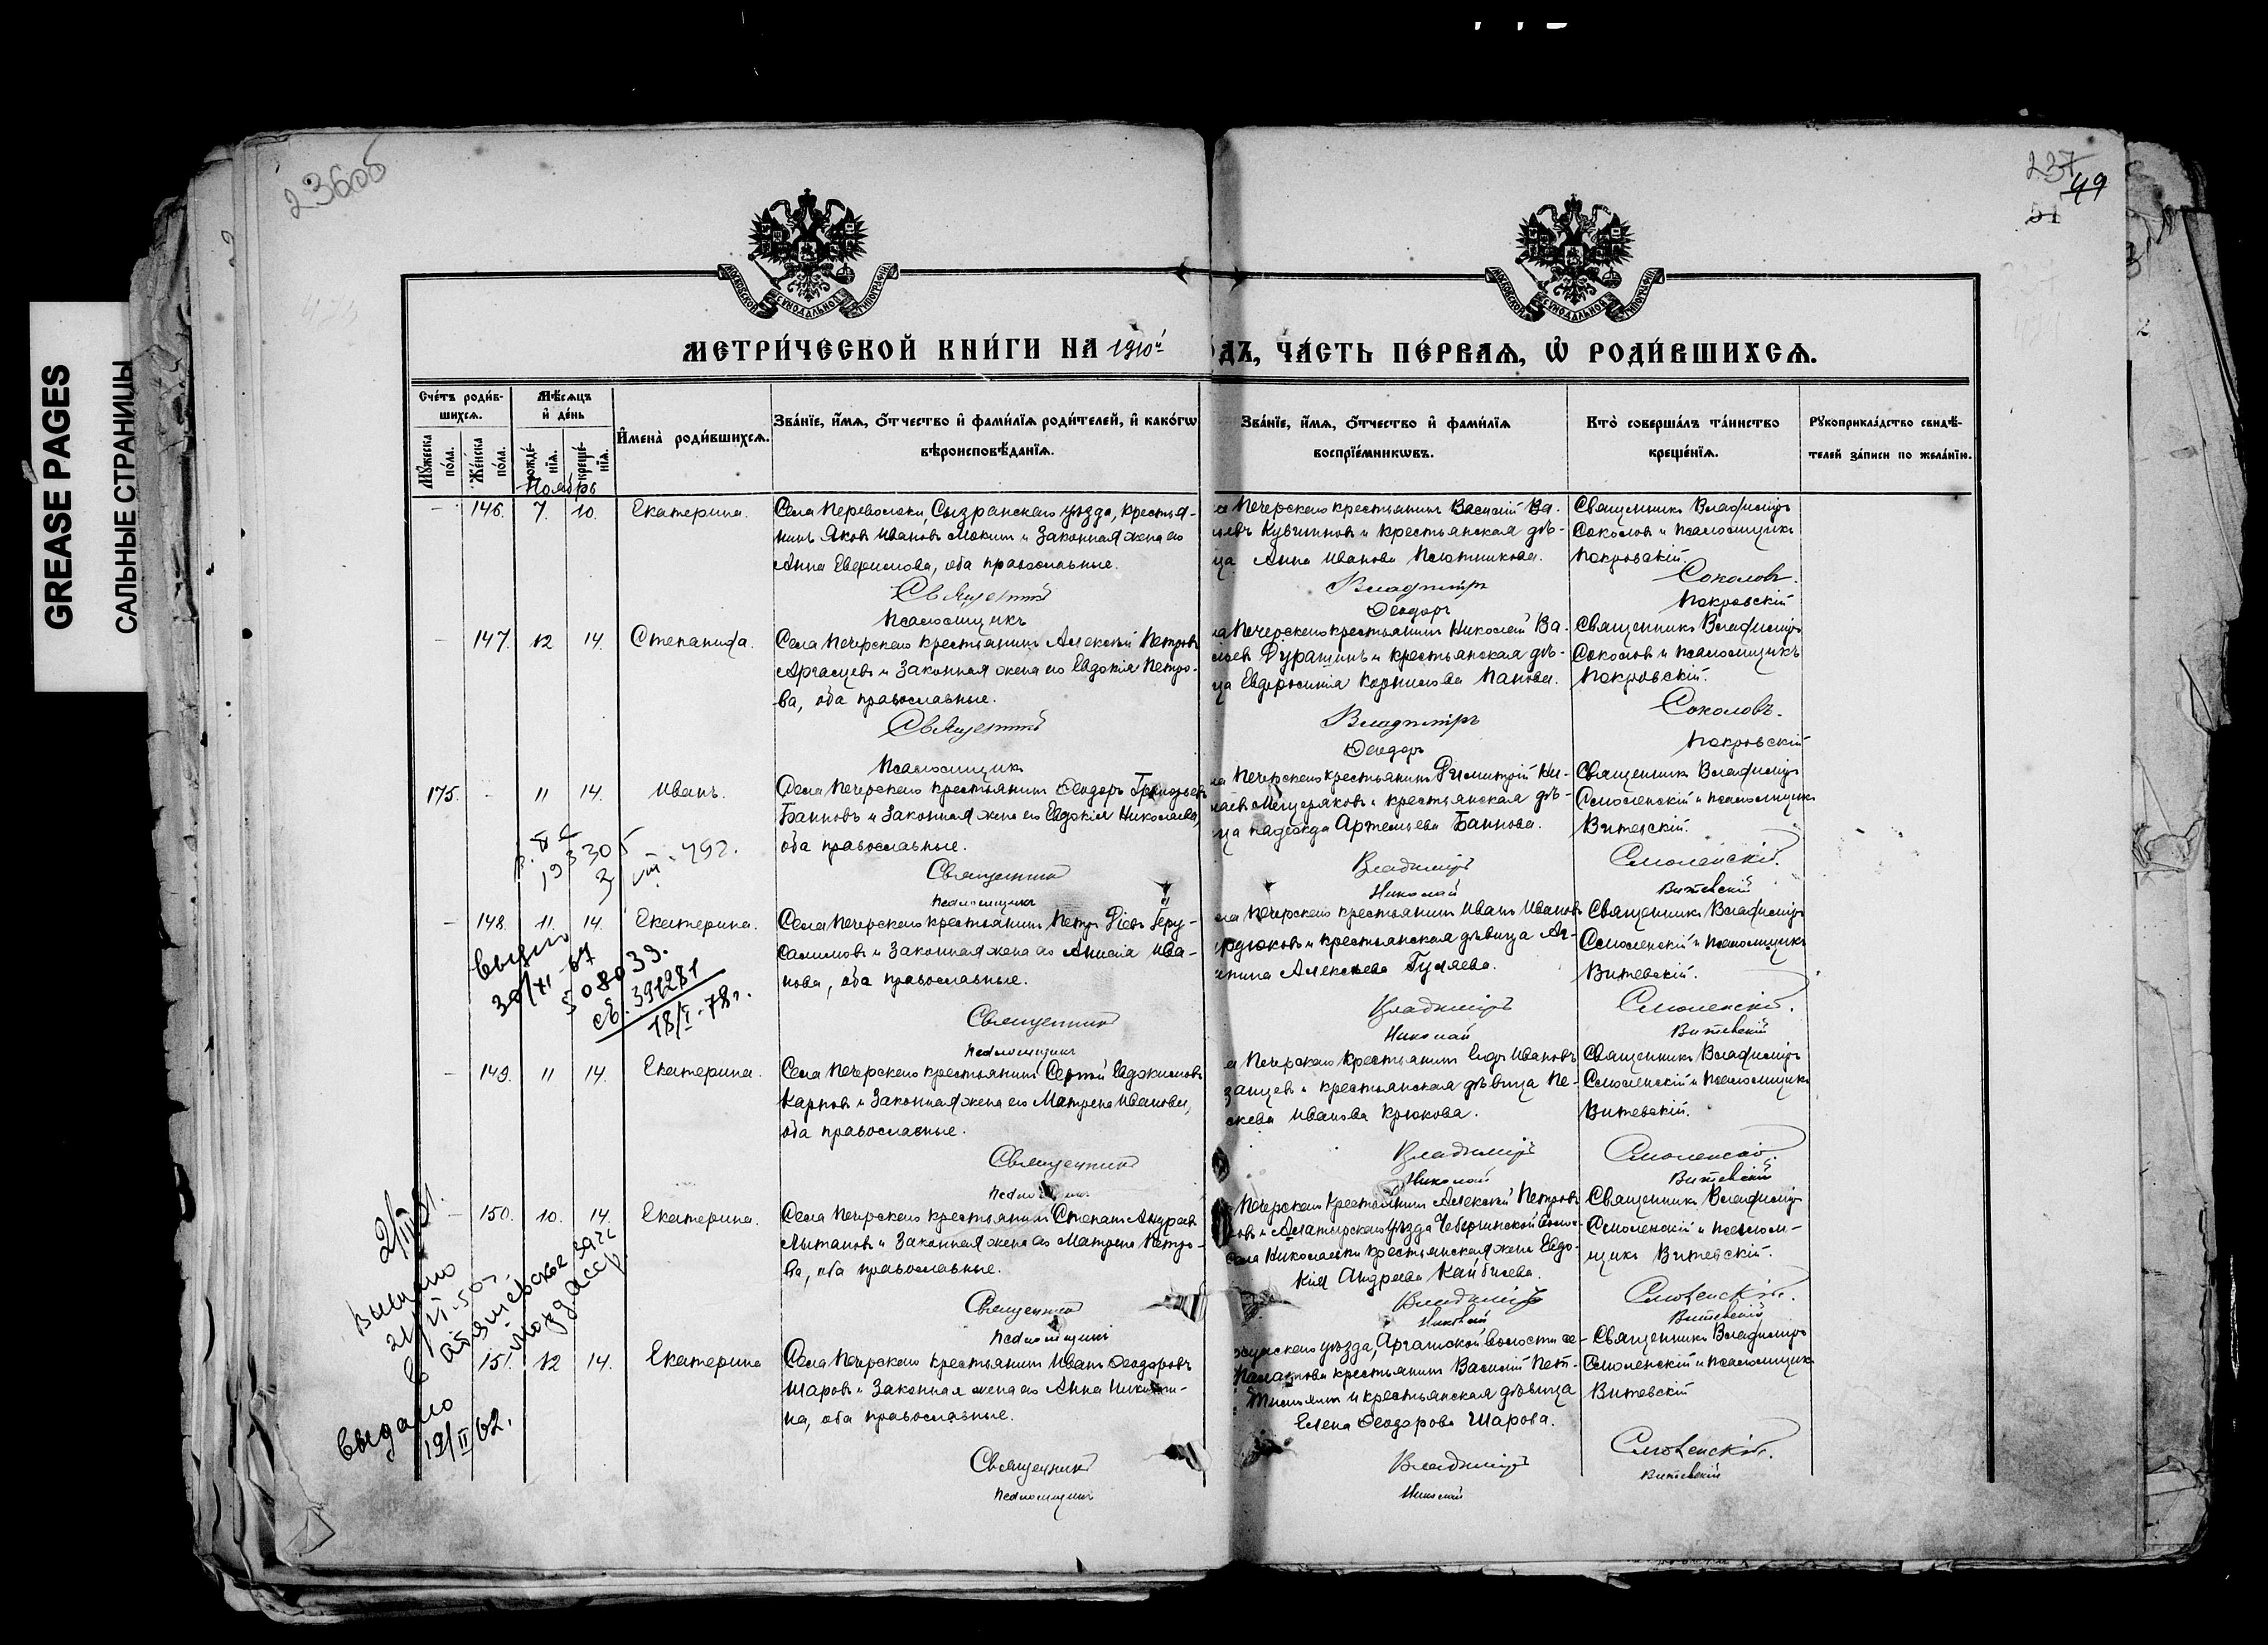 236об
237
49
51
GREASE PAGES
САЛЬНЫЕ СТРАНИЦЫ
МОСКОВСКОЙ СѴНОДАЛЬНОЙ ТИПОГРАФІИ
МОСКОВСКОЙ СѴНОДАЛЬНОЙ ТИПОГРАФІИ
МЕТРИ́ЧЕСКОЙ КНИ́ГИ НА 1910й
ДЪ, ЧА́СТЬ ПЕ́РВАѦ, Ѡ҆ РОДИ́ВШИХСѦ.
Сче́тъ роди́в-
шихсѧ.
Мꙋ́жеска по́ла.
Же́нска по́ла.
Мѣ́сѧцъ
и҆ де́нь
рожде́-
нїѧ.
креще́-
нїѧ.
И҆мена̀ роди́вшихсѧ.
Зва́нїе, и҆́мѧ, ѻ҆́тчество и҆ фами́лїѧ роди́телей, и҆ како́гѡ
вѣроисповѣ́данїѧ.
Зва́нїе, и҆́мѧ, ѻ҆́тчество и҆ фами́лїѧ
воспрїе́мникѡвъ.
Кто̀ соверша́лъ та́инство
креще́нїѧ.
Рꙋкоприкла́дство свидѣ́-
телей за́писи по жела́нїю.
Ноябрь
- 146. 7. 10. Екатерина.
Села Переволоки, Сызранскаго уѣзда, крестья-
нинъ Яковъ Ивановъ Мокинъ и законная жена его
Анна Евфимова, оба православные.
Священникъ
Псаломщикъ
Печерскаго крестьянинъ Василій Ва-
Кувшинов и крестьянская дѣ-
ца Анна Иванова Плотникова.
Владимiръ
Ѳеодоръ
Священникъ Владимiръ
Соколов и псаломщикъ
Покровскій.
Соколовъ.
Покровскій
- 147. 12 14. Степанида.
Села Печерскаго крестьянинъ Алексѣй Петровъ
Аргасцевъ и законная жена его Евдокія Петро-
ва, оба православные.
Священникъ
Псаломщикъ
Печерскаго крестьянинъ Николай Ва-
Дурашинъ и крестьянская дѣ-
ца Евфросинія Корнилова Панова.
Владимiръ
Ѳеодоръ
Священникъ Владимiръ
Соколов и псаломщикъ
Покровскій.
Соколовъ.
Покровскій
175. - 11 14. Иванъ.
Села Печерскаго крестьянинъ Ѳеодоръ Григорьевъ
Банновъ и законная жена его Евдокія Николаева,
оба православные.
Священникъ
Псаломщикъ
Печерскаго крестьянинъ Димитрій Ни-
Мещеряковъ и крестьянская дѣ-
ца Надежда Артемьева Баннова.
Владимiръ
Николай
Священникъ Владимiръ
Смоленскій и псаломщикъ
Витевскій.
Смоленскій.
Витевскій
- 148. 11. 14. Екатерина.
Села Печерскаго крестьянинъ Петръ Геру-
салимовъ и законная жена его Анисія Ива-
нова, оба православные.
Священникъ
Псаломщикъ
выдано
30/XI-67
508039.
св. 391281
18/I-78г.
Печерскаго крестьянинъ Иванъ Ивановъ
и крестьянская дѣвица Аг-
Алексѣева Гуляева.
Владимiръ
Николай
Священникъ Владимiръ
Смоленскій и псаломщикъ
Витевскій.
Смоленскій.
Витевскій
- 149. 11 14. Екатерина.
Села Печерскаго крестьянинъ Сергій Евдокимовъ
Карповъ и законная жена его Матрена Иванова,
оба православные.
Священникъ
Печерскаго крестьянинъ Ивановъ
и крестьянская дѣвица Пе-
Иванова Крюкова.
Владимiръ
Николай
Священникъ Владимiръ
Смоленскій и псаломщикъ
Витевскій.
Смоленскій.
Витевскій
- 150. 10. 14. Екатерина.
Села Печерскаго крестьянинъ Степанъ Андреев
Лытановъ и законная жена его Матрена Петро-
ва, оба православные.
Священникъ
Псаломщикъ
Печерскаго крестьянинъ Алексѣй Петровъ
и Алатырскаго уѣзда
села Николаевки крестьянская жена Евдо-
кія Андреева Кайбилева.
Владимiръ
Николай
Священникъ Владимiръ
Смоленскій и псалом-
щикъ Витевскій.
Смоленскій.
Витевскій
Выдано
151. 12 14. Екатерина
Села Печерскаго крестьянинъ Иванъ Ѳеодоровъ
Шаровъ и законная жена его Анна Никити-
на, оба православные.
Священникъ
Псаломщикъ
выдано
19/II 62.
уѣзда, Аргашской волости се-
крестьянинъ Василій Пет-
и крестьянская дѣвица
Елена Ѳеодорова Шарова.
Владимiръ
Николай
Священникъ Владимiръ
Смоленскій и псаломщикъ
Витевскій
Смоленскій.
Витевскій